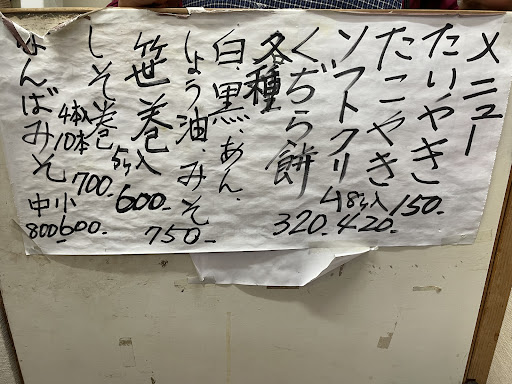 メニュー
たいやき 150-
たこやき 8ヶ入 420-
ソフトクリーム 320-
くぢら餅
各種
白、黒、あん、
しょう油 みそ 750-
笹巻 5ヶ入 600-
しそ巻 4本入10本 700-
なんばみそ 小600- 中800-